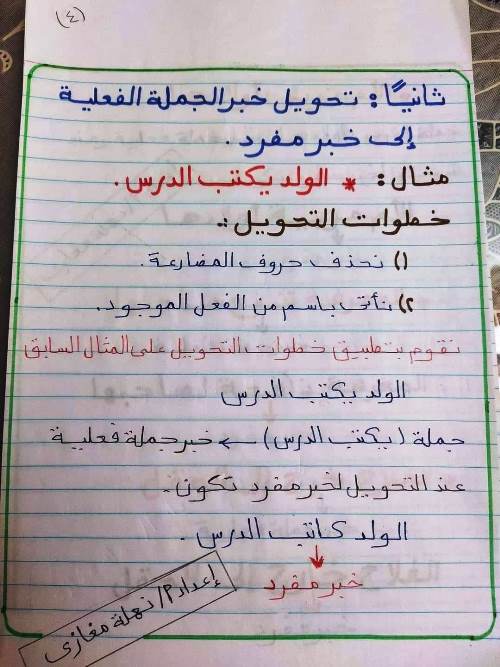 (٤)
ثانيًا: تحويل خبر الجملة الفعلية
إلى خبر مفرد.
مثال: * الولد يكتب الدرس.
خطوات التحويل:-
١) نحذف حروف المضارعة.
٢) نأتى باسم من الفعل الموجود.
نقوم بتطبيق خطوات التحويل على المثال السابق
الولد يكتب الدرس
جملة (يكتب الدرس) ← خبر جملة فعلية
عند التحويل لخبر مفرد تكون.
الولد كاتب الدرس.
↓
خبر مفرد
إعداد م/ نهلة مغازى